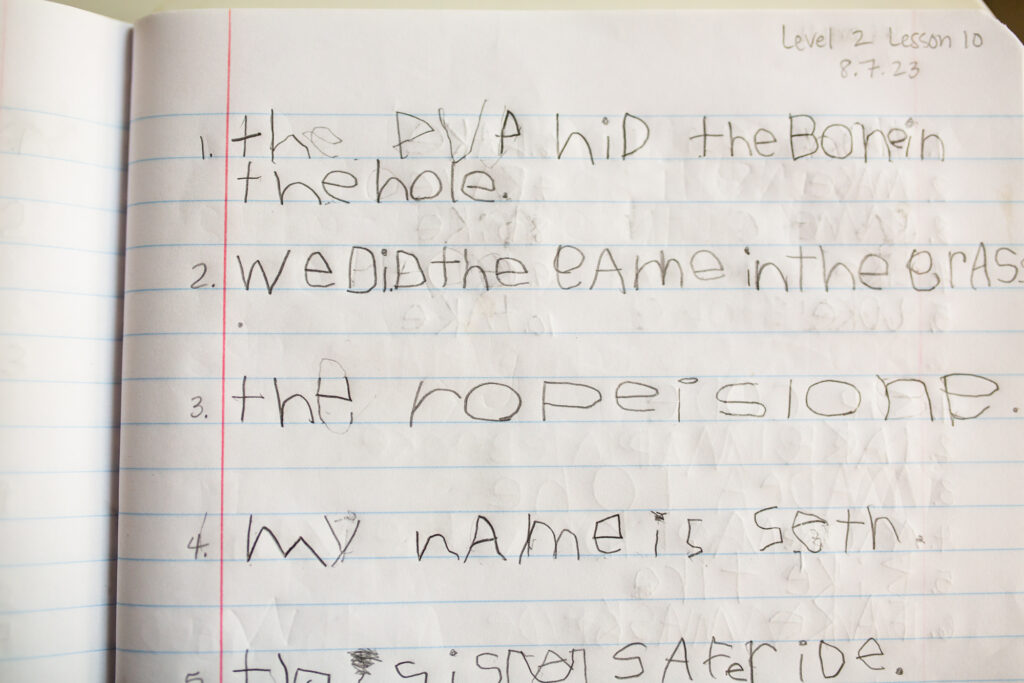 Level 2 Lesson 10
8.7.23
1. the PVP hiD the Bonein
the hole.
2. We DiD the GAme in the GrASS
.
3. the rope is long.
4. my nAme is Seth.
5. iDe.